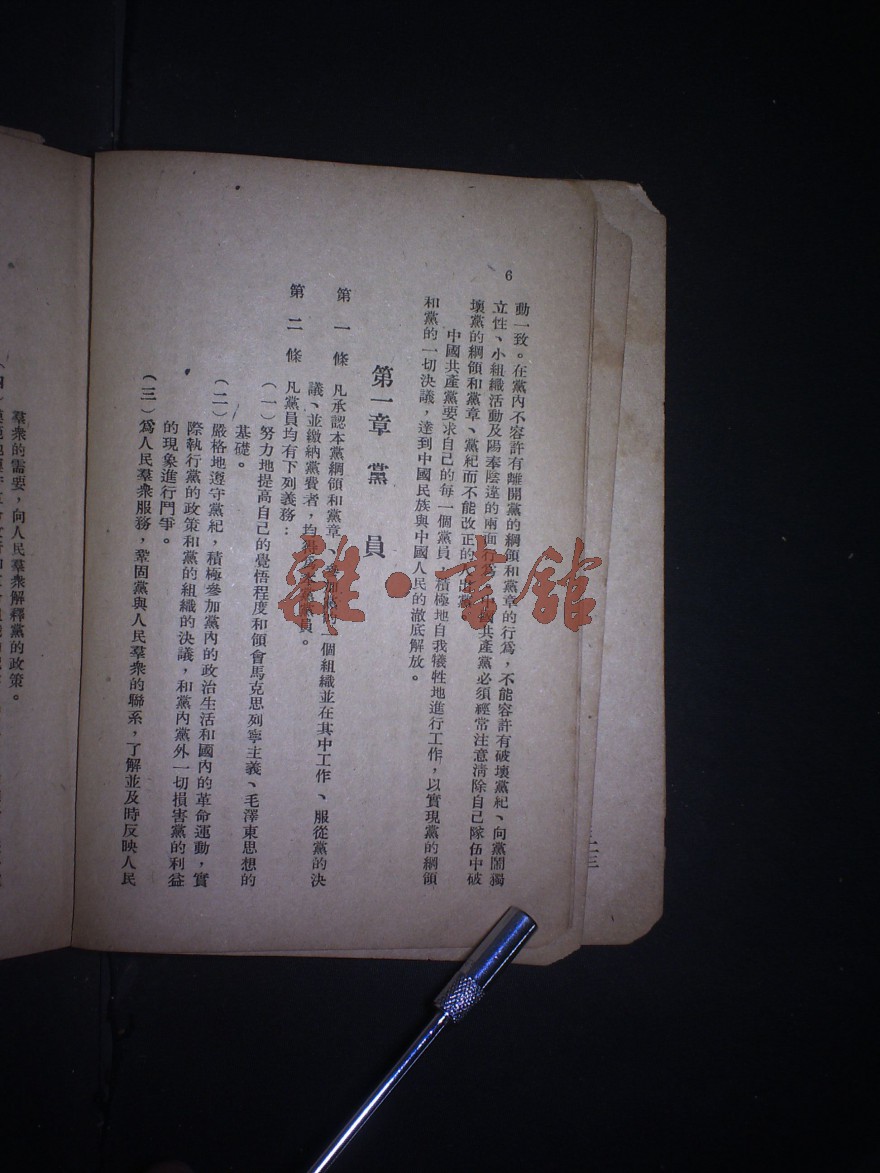 6
動一致。在黨內不容許有離開黨的綱領和黨章的行爲，不能容許有破壞黨紀、向黨鬧獨
立性、小組織活動及陽奉陰違的兩面行爲。中國共產黨必須經常注意清除自己隊伍中破
壞黨的綱領和黨章、黨紀而不能改正的人出黨。
中國共產黨要求自己的每一個黨員，積極地自我犧牲地進行工作，以實現黨的綱領
和黨的一切決議，達到中國民族與中國人民的澈底解放。
第一章 黨 員
第 一 條 凡承認本黨綱領和黨章、參加黨的一個組織並在其中工作、服從黨的決
議、並繳納黨費者，均得爲本黨黨員。
第 二 條 凡黨員均有下列義務：
（一）努力地提高自己的覺悟程度和領會馬克思列寧主義、毛澤東思想的
基礎。
（二）嚴格地遵守黨紀，積極參加黨內的政治生活和國內的革命運動，實
際執行黨的政策和黨的組織的決議，和黨內黨外一切損害黨的利益
的現象進行鬥爭。
（三）爲人民羣衆服務，鞏固黨與人民羣衆的聯系，了解並及時反映人民
羣衆的需要，向人民羣衆解釋黨的政策。
雜·書館